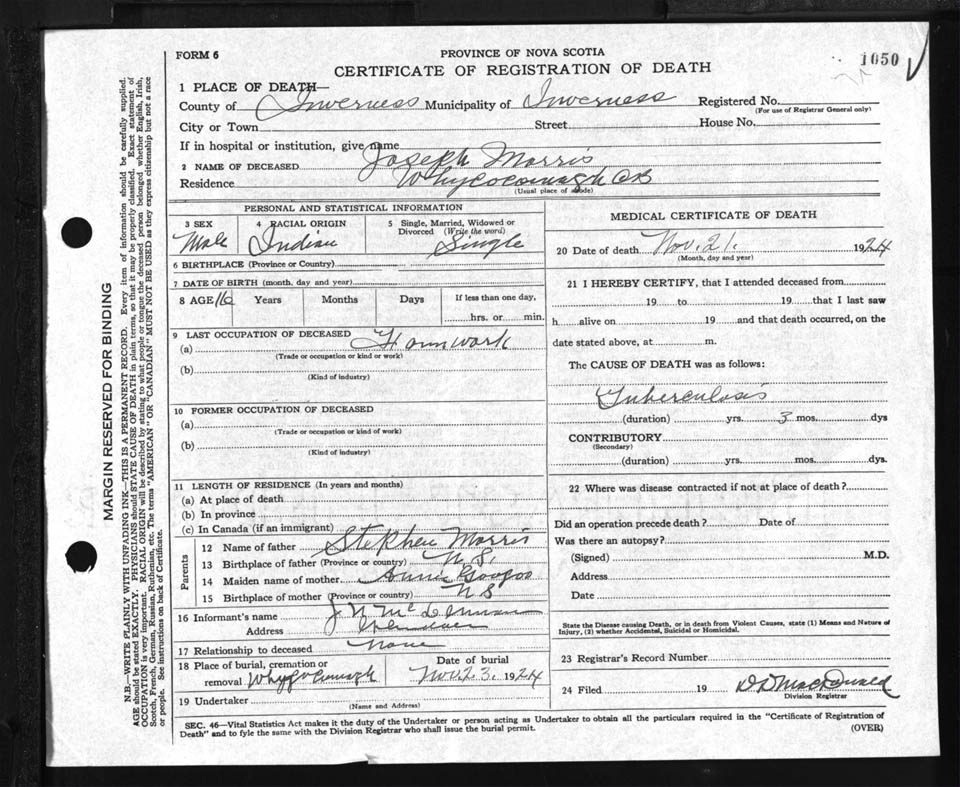 FORM 6
PROVINCE OF NOVA SCOTIA
1050
CERTIFICATE OF REGISTRATION OF DEATH
1 PLACE OF DEATH—
County of Inverness Municipality of Inverness Registered No.
(For use of Registrar General only)
City or Town Street House No.
If in hospital or institution, give name
2 NAME OF DECEASED Joseph Morris
Residence Whycocomagh CB
(Usual place of abode)
PERSONAL AND STATISTICAL INFORMATION
3 SEX 4 RACIAL ORIGIN 5 Single, Married, Widowed or Divorced (Write the word)
Male Indian Single
6 BIRTHPLACE (Province or Country)
7 DATE OF BIRTH (month, day and year)
8 AGE 16 Years Months Days If less than one day,
hrs. or min.
9 LAST OCCUPATION OF DECEASED
(a) Farmwork
(Trade or occupation or kind or work)
(b)
(Kind of industry)
10 FORMER OCCUPATION OF DECEASED
(a)
(Trade or occupation or kind of work)
(b)
(Kind of industry)
11 LENGTH OF RESIDENCE (In years and months)
(a) At place of death
(b) In province
(c) In Canada (if an immigrant)
Parents
12 Name of father Stephen Morris
13 Birthplace of father (Province or country) N.S.
14 Maiden name of mother Annie Googoo
15 Birthplace of mother (Province or country) N S
16 Informant's name J N McLennan
Address
17 Relationship to deceased None
18 Place of burial, cremation or removal Whycocomagh
Date of burial
Nov. 23. 1924
19 Undertaker
(Name and Address)
MEDICAL CERTIFICATE OF DEATH
20 Date of death Nov. 21. 1924
(Month, day and year)
21 I HEREBY CERTIFY, that I attended deceased from
19 to 19 that I last saw
h alive on 19 and that death occurred, on the
date stated above, at m.
The CAUSE OF DEATH was as follows:
Tuberculosis
(duration) yrs. 3 mos. dys
CONTRIBUTORY
(Secondary)
(duration) yrs. mos. dys.
22 Where was disease contracted if not at place of death?
Did an operation precede death? Date of
Was there an autopsy?
(Signed) M.D.
Address
Date
State the Disease causing Death, or in death from Violent Causes, state (1) Means and Nature of
Injury, (2) whether Accidental, Suicidal or Homicidal.
23 Registrar's Record Number
24 Filed 19 D D MacDonald
Division Registrar
SEC. 46—Vital Statistics Act makes it the duty of the Undertaker or person acting as Undertaker to obtain all the particulars required in the "Certificate of Registration of
Death" and to fyle the same with the Division Registrar who shall issue the burial permit.
(OVER)
MARGIN RESERVED FOR BINDING
N.B.—WRITE PLAINLY WITH UNFADING INK—THIS IS A PERMANENT RECORD. Every item of information should be carefully supplied.
AGE should be stated EXACTLY. PHYSICIANS should STATE CAUSE OF DEATH in plain terms, so that it may be properly classified. Exact statement of
OCCUPATION is very important. RACIAL ORIGIN will be described by stating to what people or tongue the deceased person belonged whether English, Irish,
Scotch, French, German, Russian, Ruthenian, etc. The terms "AMERICAN" OR "CANADIAN" MUST NOT BE USED as they express citizenship but not a race
or people. See instructions on back of Certificate.